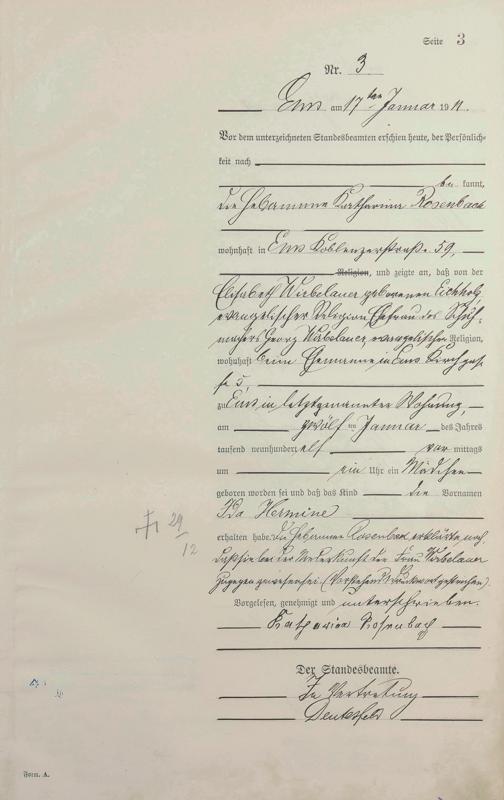 Seite 3
Nr. 3
Ems am 17ten Januar 1911.
Vor dem unterzeichneten Standesbeamten erschien heute, der Persönlich-
keit nach
be kannt,
die Hebamme Katharina Rosenbach
wohnhaft in Ems Koblenzerstraße 59,
Religion, und zeigte an, daß von der
Elisabeth Wirbelauer geborenen Eichholz
evangelischer Religion Ehefrau des Schuh-
machers Georg Wirbelauer evangelischer Religion,
wohnhaft beim Ehemanne in Ems Kirchgas-
se 5,
zu Ems in letztgenannter Wohnung,
am zwölf ten Januar des Jahres
tausend neunhundert elf vor mittags
um ein Uhr ein Mädchen
geboren worden sei und daß das Kind die Vornamen
Ida Hermine
erhalten habe. Die Hebamme Rosenbach erklärte noch
daß sie bei der Niederkunft der Frau Wirbelauer
zugegen gewesen sei. (Vorstehend Druckwort gestrichen)
Vorgelesen, genehmigt und unterschrieben.
Katharina Rosenbach
29
12
Der Standesbeamte.
In Vertretung
Form. A.